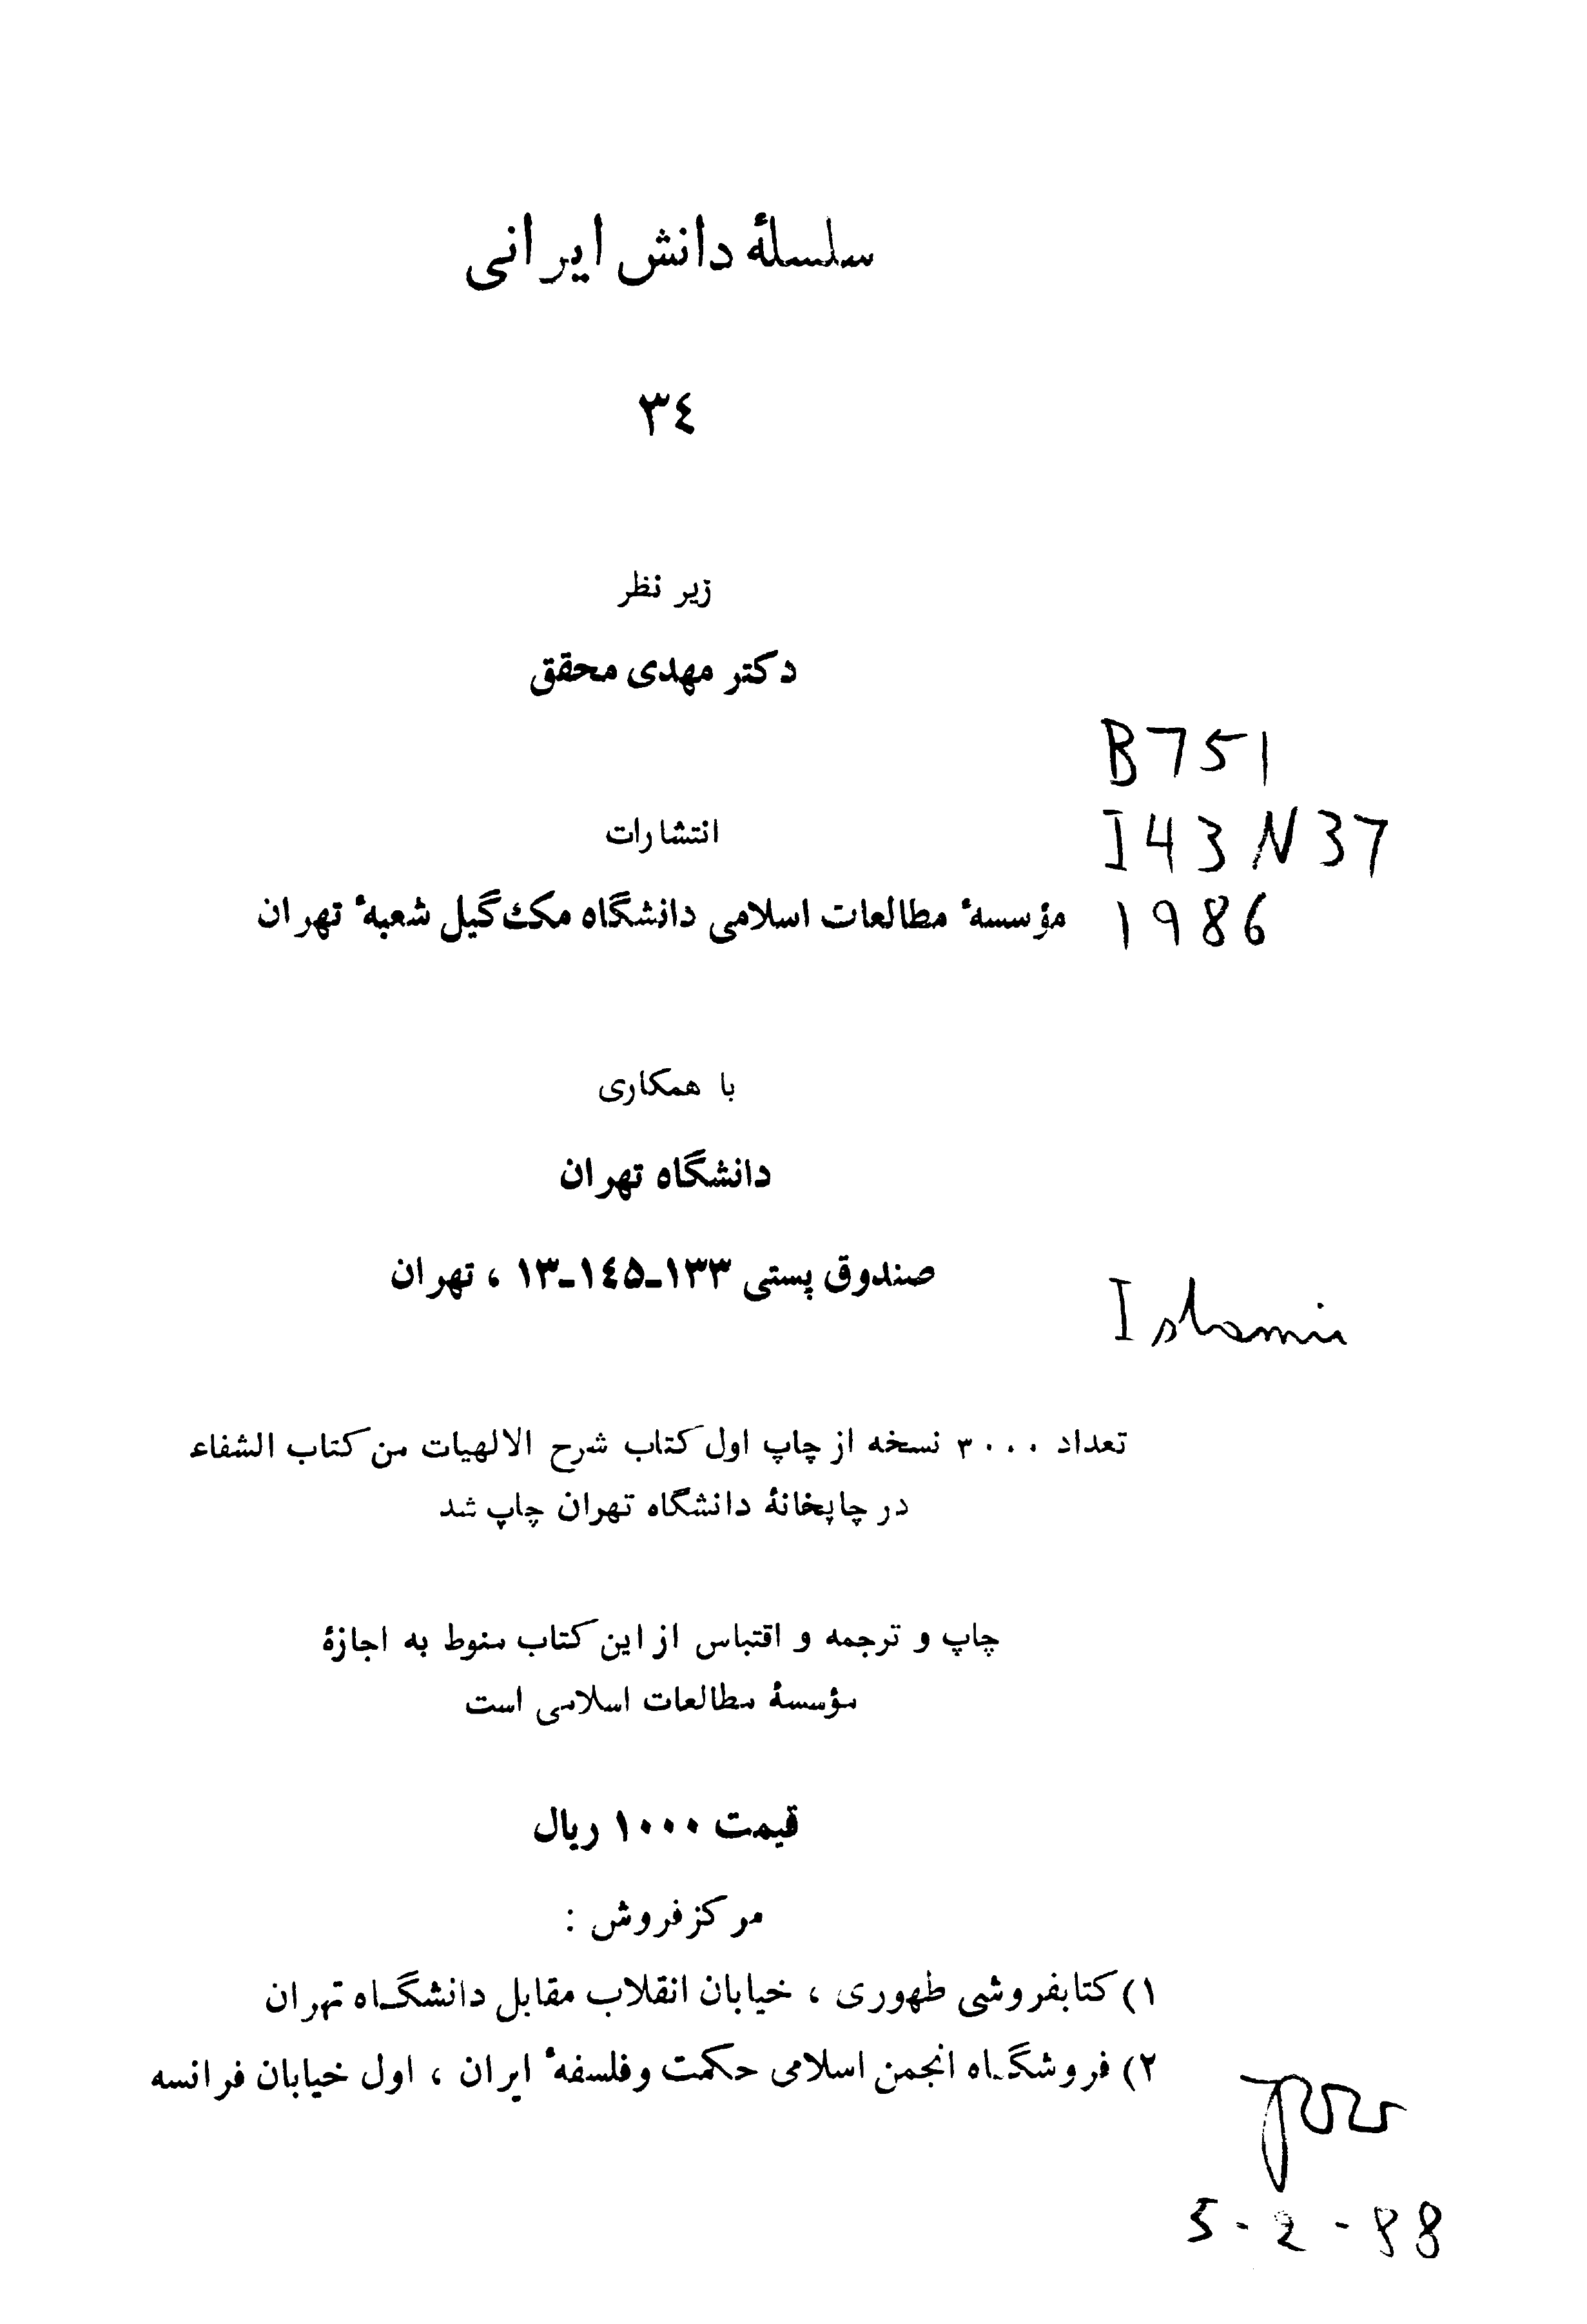 سلسلهٔ دانش ایرانی
٣٤
زیر نظر
دکتر مهدی محقق
B751
انتشارات
I43N37
مؤسسهٔ مطالعات اسلامی دانشگاه مک‌گیل شعبهٔ تهران
1986
با همکاری
دانشگاه تهران
صندوق پستی ۱۳۳-۱٤۵-۱۳ ، تهران
تعداد ۳۰۰۰ نسخه از چاپ اول کتاب شرح الالهیات من کتاب الشفاء
در چاپخانهٔ دانشگاه تهران چاپ شد
چاپ و ترجمه و اقتباس از این کتاب منوط به اجازهٔ
مؤسسهٔ مطالعات اسلامی است
قیمت ۱۰۰۰ ریال
مرکز فروش :
۱) کتابفروشی طهوری ، خیابان انقلاب مقابل دانشگاه تهران
۲) فروشگاه انجمن اسلامی حکمت و فلسفهٔ ایران ، اول خیابان فرانسه
5-2-88